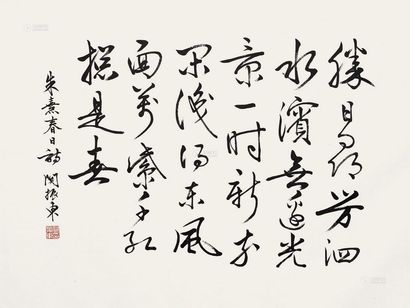 勝日尋芳泗
水濱無邊光
景一时新等
閑識得東風
面萬紫千紅
總是春
朱熹春日詩 関振東